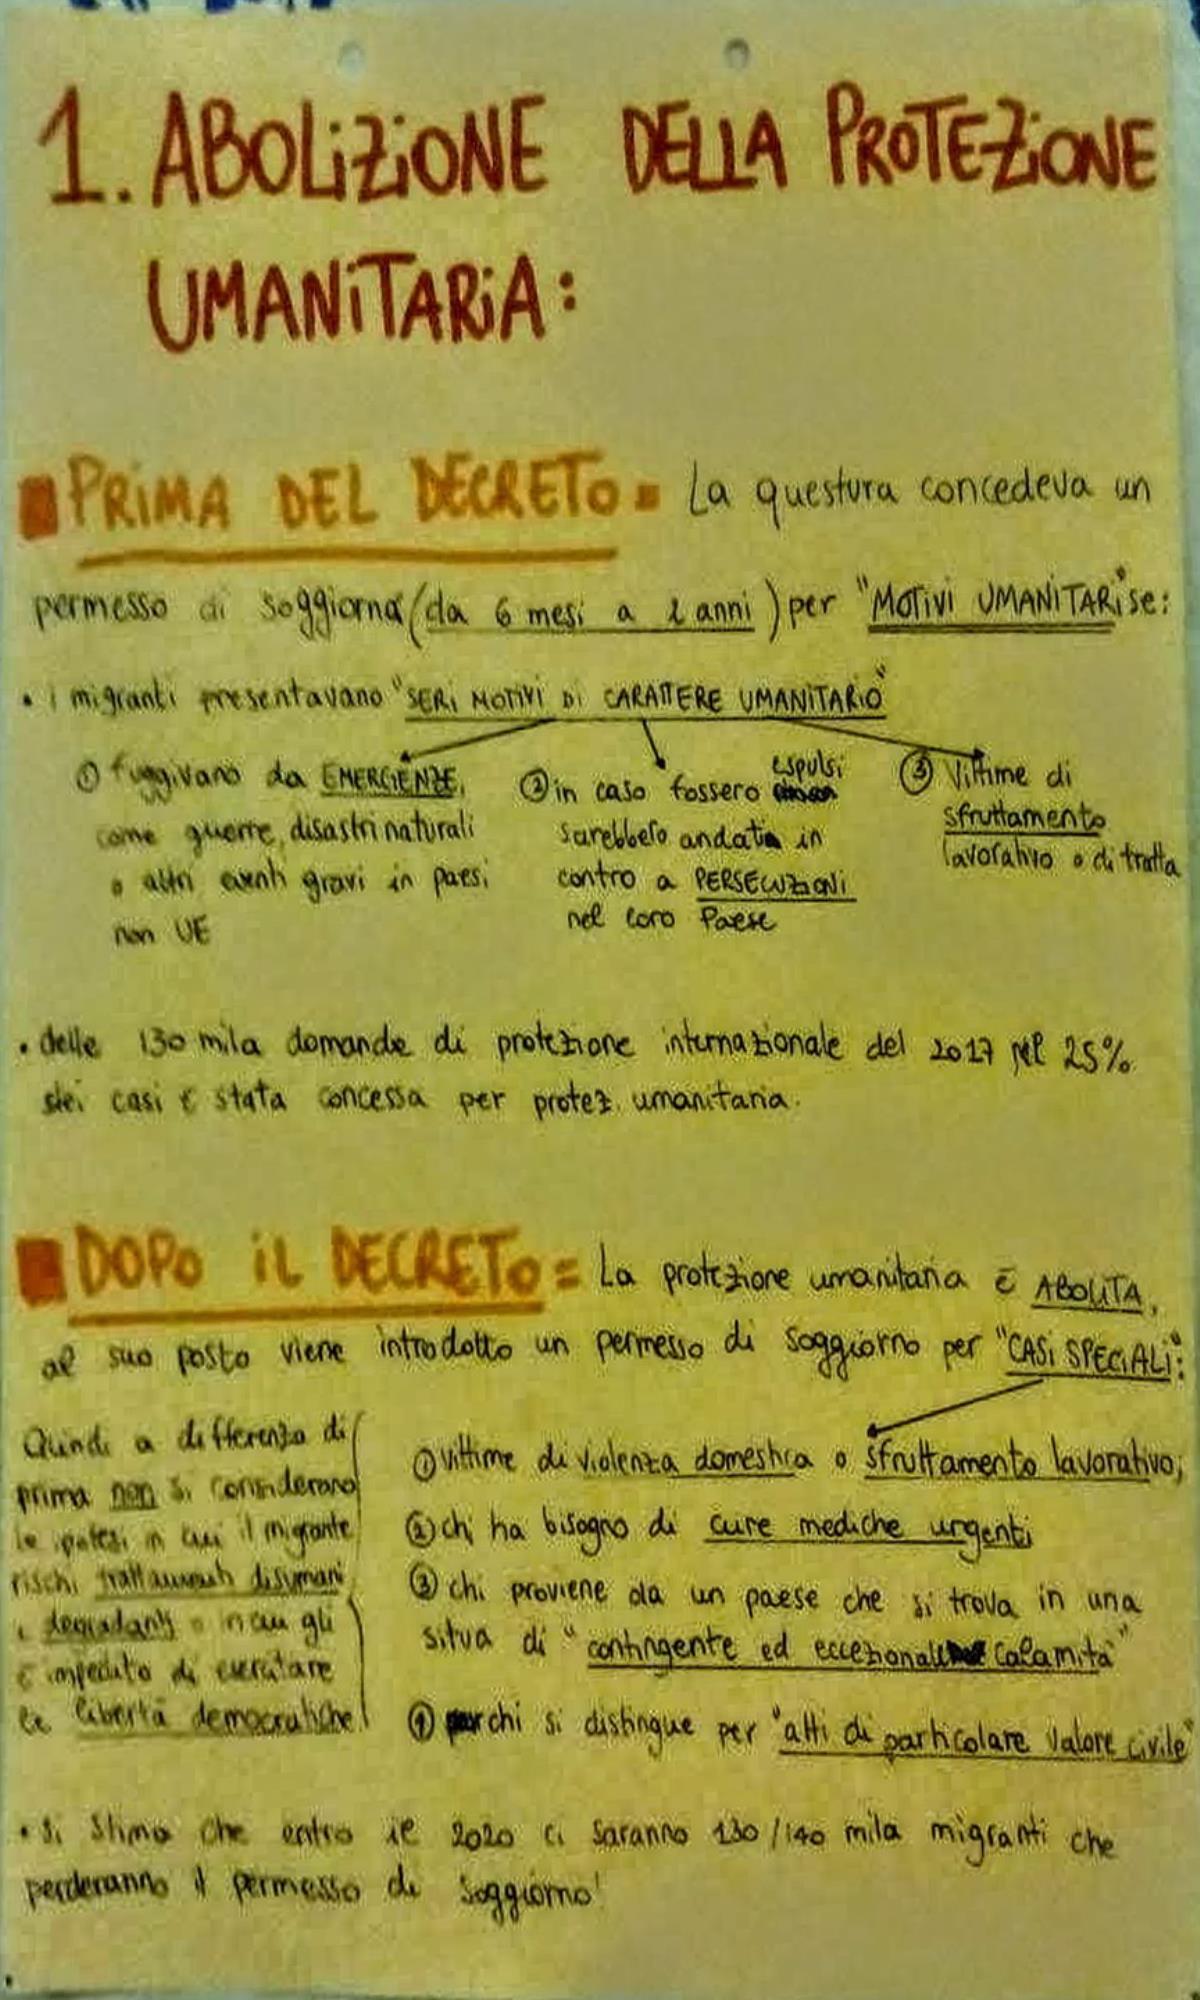 1. ABOLIZIONE DELLA PROTEZIONE
UMANITARIA:
PRIMA DEL DECRETO= La questura concedeva un
permesso di soggiorna (da 6 mesi a 2 anni) per "MOTIVI UMANITARI" se:
• i migranti presentavano "SERI MOTIVI DI CARATTERE UMANITARIO"
① fuggivano da EMERGENZE,
come guerre, disastri naturali
o altri eventi gravi in paesi
non UE
② in caso fossero espulsi
sarebbero andati in
contro a PERSECUZIONI
nel loro Paese
③ Vittime di
sfruttamento
lavorativo o di tratta
• delle 130 mila domande di protezione internazionale del 2017 nel 25%
dei casi è stata concessa per protez. umanitaria.
DOPO IL DECRETO= La protezione umanitaria è ABOLITA,
al suo posto viene introdotto un permesso di soggiorno per "CASI SPECIALI":
Quindi a differenza di
prima non si considerano
le ipotesi in cui il migrante
rischi trattamenti disumani
e degradanti o in cui gli
è impedito di esercitare
le libertà democratiche
① vittime di violenza domestica o sfruttamento lavorativo;
② chi ha bisogno di cure mediche urgenti
③ chi proviene da un paese che si trova in una
situa di "contingente ed eccezionale calamità"
④ chi si distingue per "atti di particolare valore civile"
• Si stima che entro il 2020 ci saranno 130/140 mila migranti che
perderanno il permesso di soggiorno!